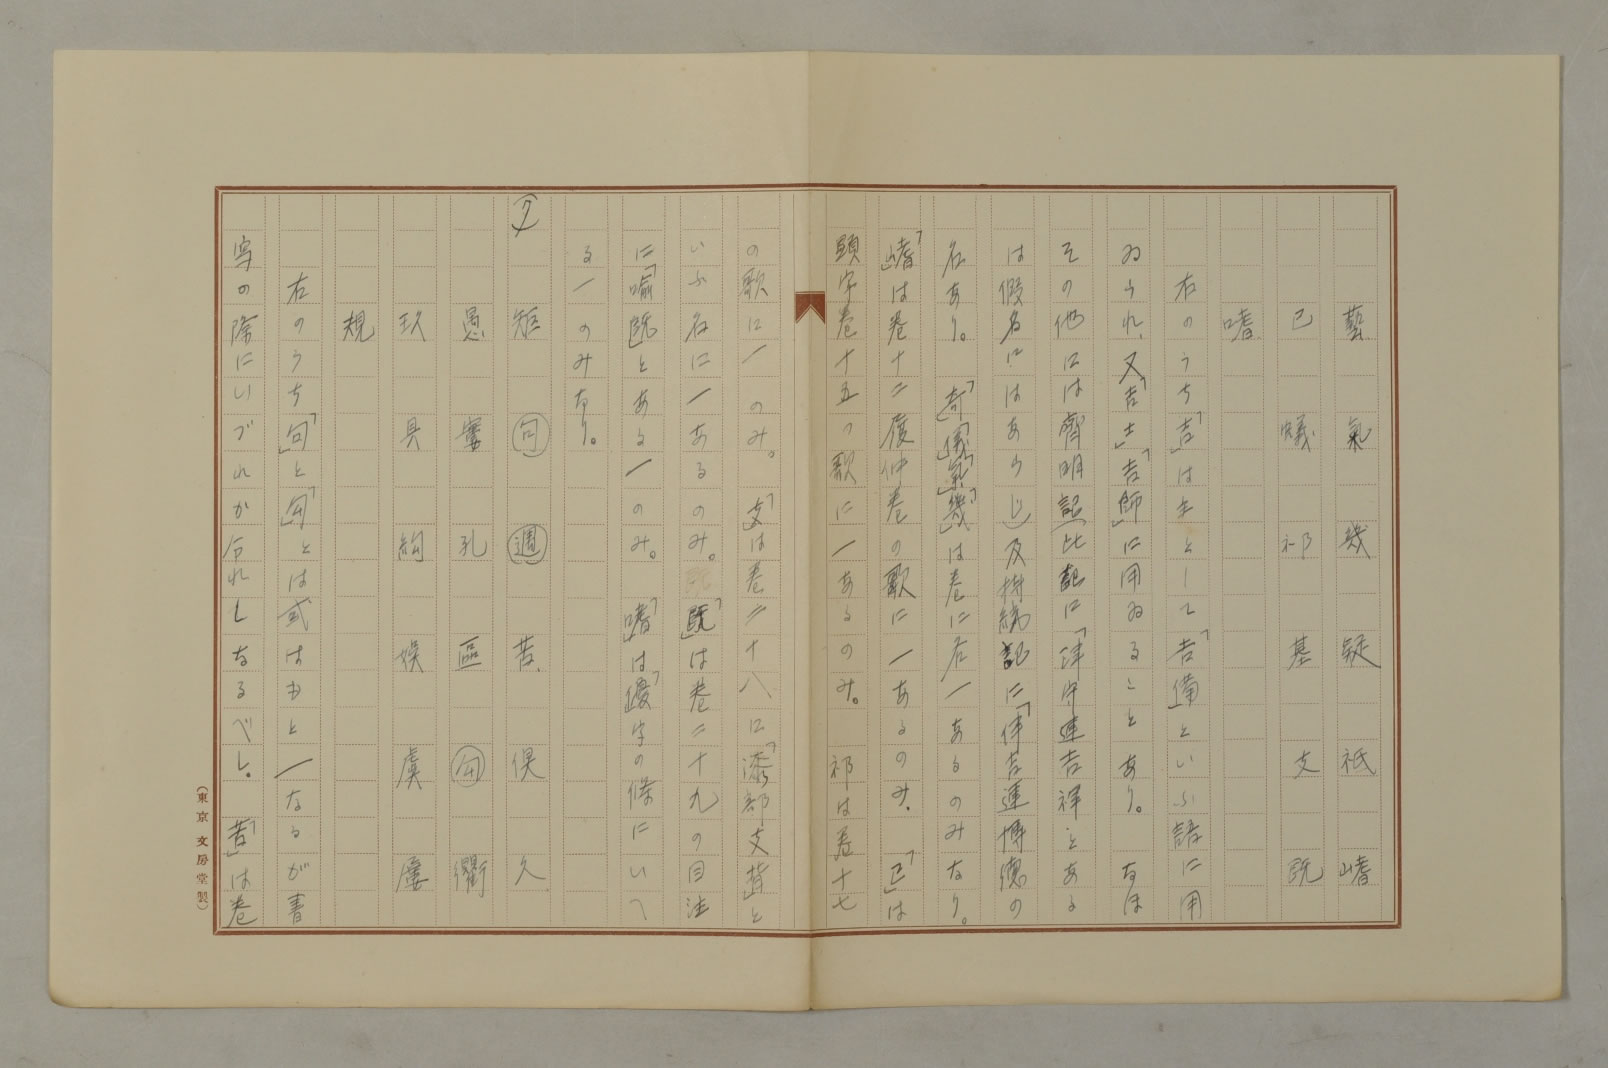 藝 氣 幾 疑 祇 嗜
己 蟻 祁 基 支 既
嗜
右のうち「吉」は主として「吉備」といふ語に用
ゐられ、又「吉士」「吉師」に用ゐることあり。なほ
その他には齊明記(此記に「津守連吉祥」とある
は假名にはあらじ)及持統記に「伊吉連博徳」の
名あり。「奇」「儀」「氣」「幾」は巻に名一あるのみなり。
「嗜」は巻十二履仲巻の歌に一あるのみ。「己」は
顕宗巻十五の歌に一あるのみ。祁は巻十七
の歌に一のみ。「支」は巻二十八に「漆部支」と
いふ名に一あるのみ。「既」は巻二十九の自注
に「喩既」とある一のみ。「嗜」は「優」字の條にいへ
る一のみなり。
ク
矩 句 週 苦 倶 久
愚 窶 孔 區 勾 衢
玖 具 絇 娯 虞 屢
規
右のうち「句」と「勾」とは或はもと一なるが書
寫の際にいづれか分れしなるべし。「苦」は巻
(東京 文房堂製)